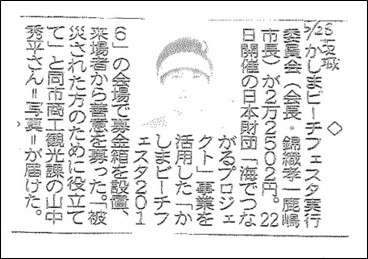 茨城
◇
かしまビーチフェスタ実行
委員会（会長・錦織孝一鹿嶋
市長）が2万2502円。22
日開催の日本財団「海でつな
がるプロジェ
クト」事業を
活用した「か
しまビーチフ
ェスタ201
6」の会場で募金箱を設置、
来場者から善意を募った。「被
災された方のために役立て
て」と同市商工観光課の山中
秀平さん＝写真＝が届けた。